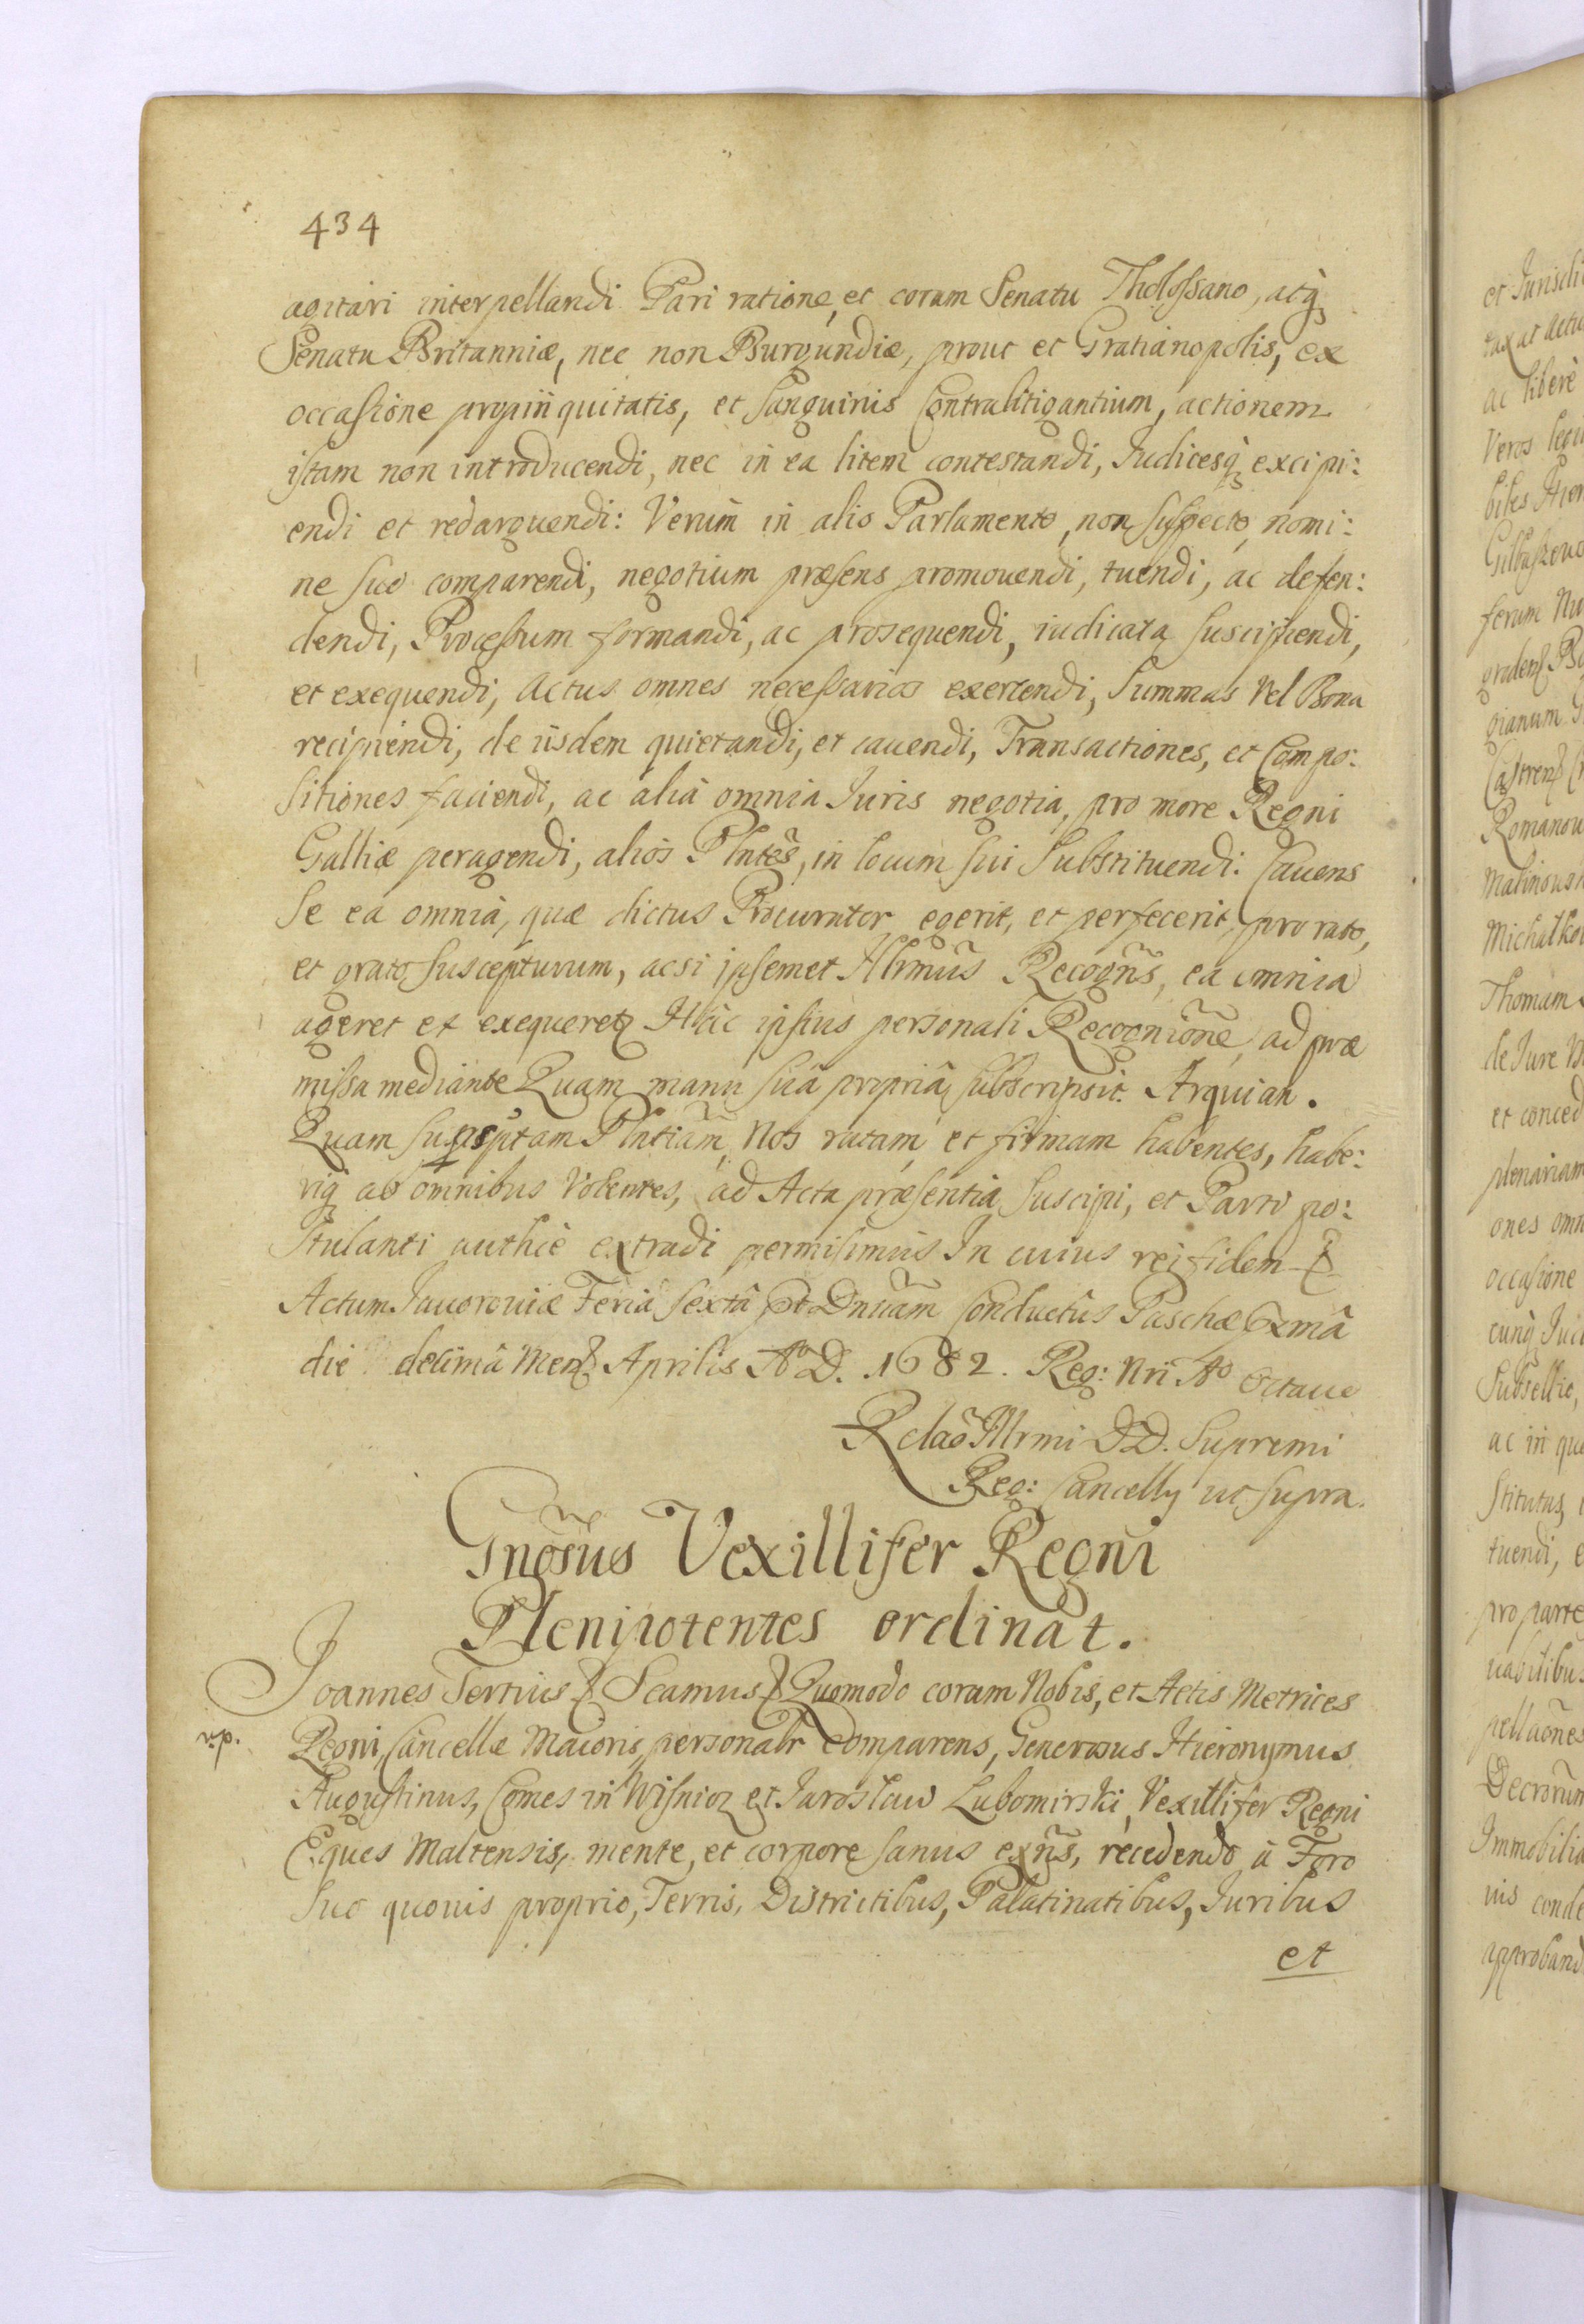 434
agitari interpellandi Pari ratione, et coram Senatu Tholossano, atq̀
Senatu Britanniæ, nec non Burgundiæ, prout et Gratianopolis, ex
occasione propinquitatis, et Sanguinis Contralitigantium, actionem
istam non introducendi, nec in ea litem contestandi, Iudicesq̀ excipi:
endi et redarguendi: Verum in alio Parlamento, non suspecto, nomi:
ne suo comparendi, negotium præsens promouendi, tuendi, ac defen:
dendi, Processum formandi, ac prosequendi, iudicata suscipiendi,
et exequendi, Actus omnes necessarios exercendi, Summas vel Bona
recipiendi, de iisdem quietandi, et cauendi, Transactiones, et Compo:
sitiones faciendi, ac alia omnia Iuris negotia, pro more Regni
Galliæ peragendi, alios Plntes̃, in locum sui Substituendi. Cauens
Se ea omnia, quæ dictus Procurator egerit, et perfecerit, pro rato,
et grato suscepturum, acsi ipsemet Illrmus̃ Recogns̃, ea omnia
ageret et exequeretꝫ Hâc ipsius personali Recognione̅, ad præ
missa mediante Quam manu suâ propriâ subscripsit. Arquian.
Quam suscriptam Plntiam̃, Nos ratam et firmam habentes, habe:
riq̀ ab omnibus Volentes, ad Acta præsentia Suscipi, et Parti po:
stulanti authẽ extradi permisimus In cuius rei fidem &
Actum Iauoroviæ Feriâ sextâ pt Dnicam̃ Conductûs Paschæ Pxmâ
die decimâ Menꝫ Aprilis Aº D. 1682. Reg: Nri Aº Octauo
Relaõ Illrmi D D. Supremi
Reg: Cancelly ut supra.
Gnosus̃ Vexillifer Regni
Plenipotentes ordinat.
Joannes Tertius & Scamus & Quomodo coram Nobis, et Actis Metrices
Regni, Cancellæ Maioris, personalr comparens, Generosus Hieronymus
Augustinus, Comes in Wisnicz et Iarosław Lubomirski, Vexillifer Regni
Eques Maltensis, mente, et corpore sanus exñs, recedendo à Foro
Suo quouis proprio, Terris, Districtibus, Palatinatibus, Iuribus
et